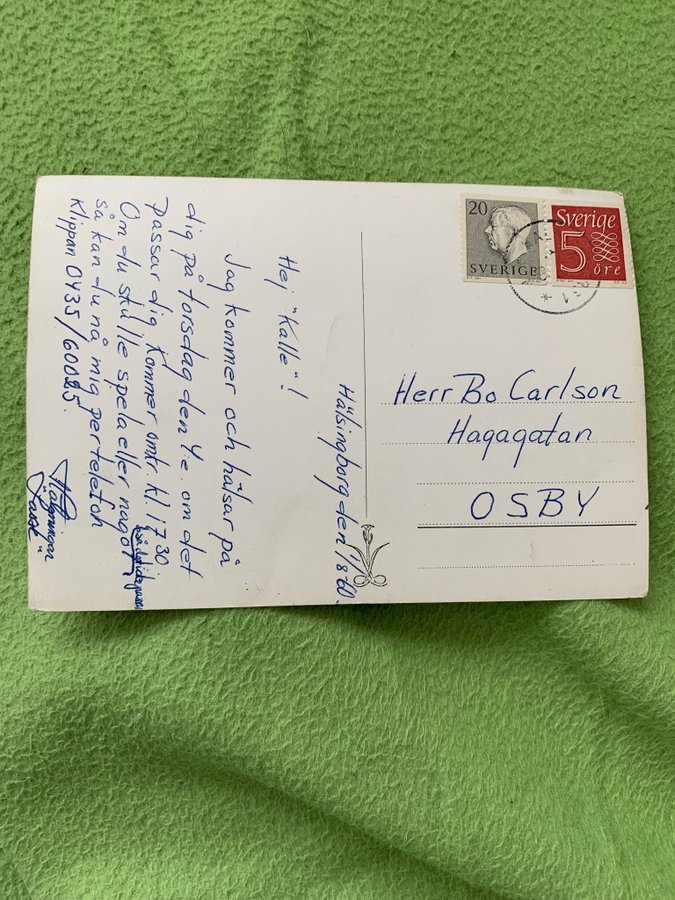 Hälsingborg den 1/8 60.
Hej "Kalle"!
Jag kommer och hälsar på
dig på torsdag den 4e. om det
passar dig. Kommer omkr kl 17 30
Om du skulle spela eller något
så kan du nå mig per telefon
Klippan 0435/60025.
Lasse
20
SVERIGE
Sverige
5
öre
Herr Bo Carlson
Hagagatan
OSBY